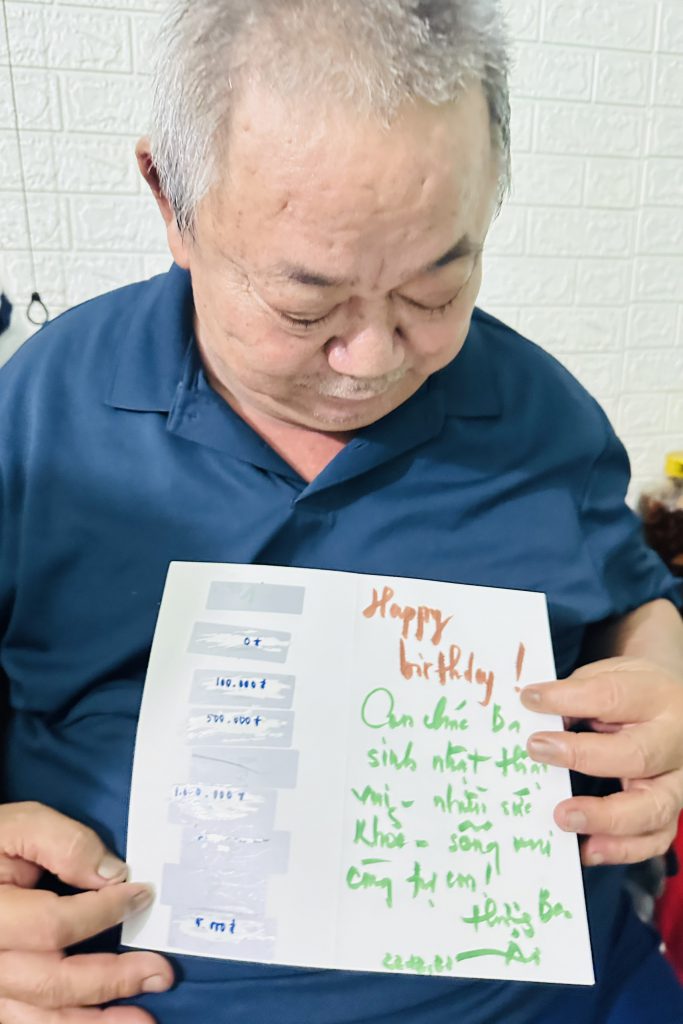 0đ
100.000đ
500.000đ
5.000đ
Happy
birthday!
Con chúc Ba
sinh nhật thật
vui - nhiều sức
khoẻ - sống mãi
cùng tụi con!
thương Ba